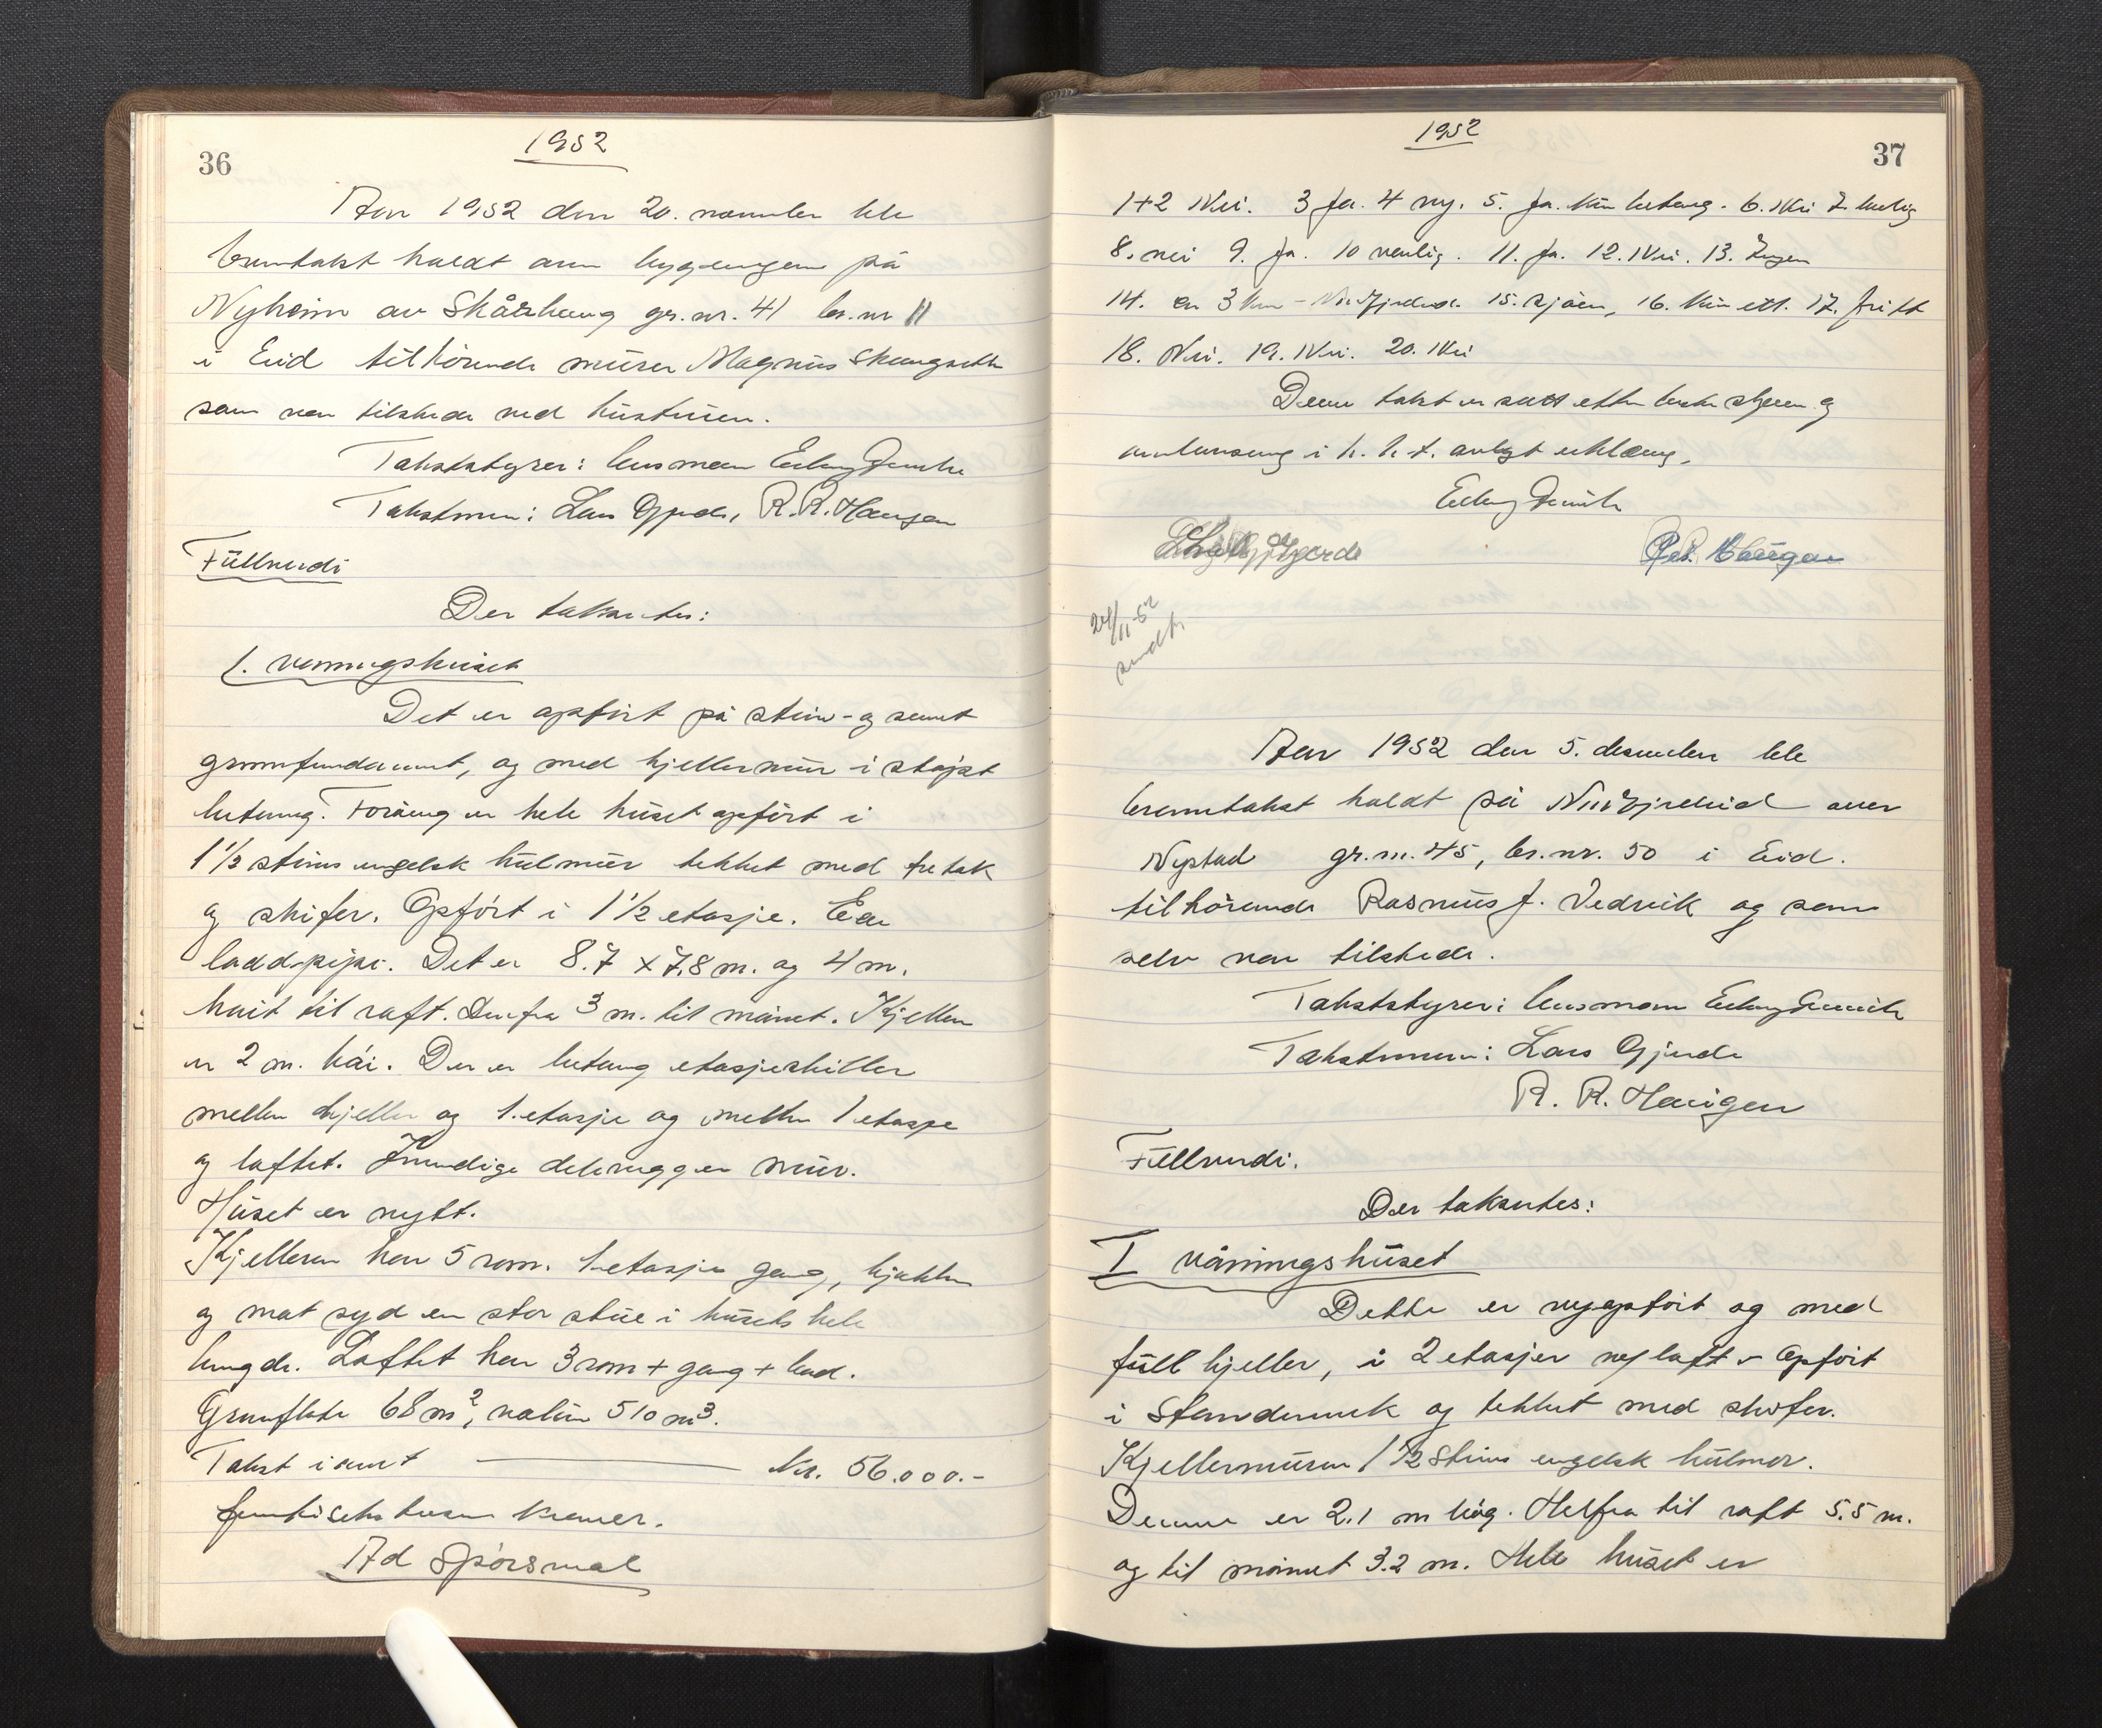 1952
36
Aar 1952 den 20. november ble
branntakst haldt over bygningen på
Nyheim av Skårhaug gr.nr. 41 br.nr 11
i Eid tilhörende murer Magnus Skaugseth
som var tilstede med hustruen.
Takststyrer: lensman Erling
Takstmenn: Lars Gjerde, R. R. Haugen
Fullverdi
Der taksertes:
1. vaaningshuset
Det er opfört på stein- og sement
grunnfundament, og med kjellermur i støpt
betong. Forövrig er hele huset opfört i
1 1/2 steins engelsk hulmur tekket med tretak
og skifer. Opfört i 1 1/2 etasje. Een
loddpipe. Det er 8.7 x 7.8 m. og 4 m.
höit til raft. Derfra 3 m. til mönet. Kjelleren
er 2 m. höi. Der er betong etasjeskiller
mellem kjeller og 1. etasje og mellem 1 etasje
og loftet. Invendige delevegger mur.
Huset er nytt.
Kjelleren har 5 rom. 1. etasje gang, kjøkken
og mot syd en stor stue i husets hele
lengde. Loftet har 3 rom + gang + bad.
Grunnflate 68 m², volum 510 m³.
Takst i alt — kr. 56.000.-
femtiseks tusen kroner.
Ad Spörsmål
1952
37
1+2 Nei. 3 ja. 4 ny. 5. ja. kun betong. 6. Nei 7. bolig
8. nei 9. ja. 10 vanlig. 11. ja. 12. Nei. 13. Ingen
14. ca 3 km - Nordfjordeid. 15. sjöen, 16. kun ett. 17. fritt
18. Nei. 19. Nei. 20. Nei
Denne takst er satt etter beste skjönn og
overbevisning i h. h. t. avlagt erklæring.
Erling
Lars Gjerde
R. R. Haugen
24/11-52
sendt
Aar 1952 den 5. desember ble
branntakst haldt på Nordfjordeid over
Nystad gr.nr. 45, br.nr. 50 i Eid.
tilhörende Rasmus J. Vedvik og som
selv var tilstede.
Takststyrer: lensman Erling
Takstmenn: Lars Gjerde
R. R. Haugen
Fullverdi.
Der taksertes:
I våningshuset
Dette er nyopfört og med
full kjeller, i 2 etasjer m/ loft - Opfört
i Stenderverk og tekket med skifer.
Kjellermuren 1 1/2 steins engelsk hulmur.
Denne er 2.1 m høg. Herfra til raft 5.5 m.
og til mönet 3.2 m. Hele huset er